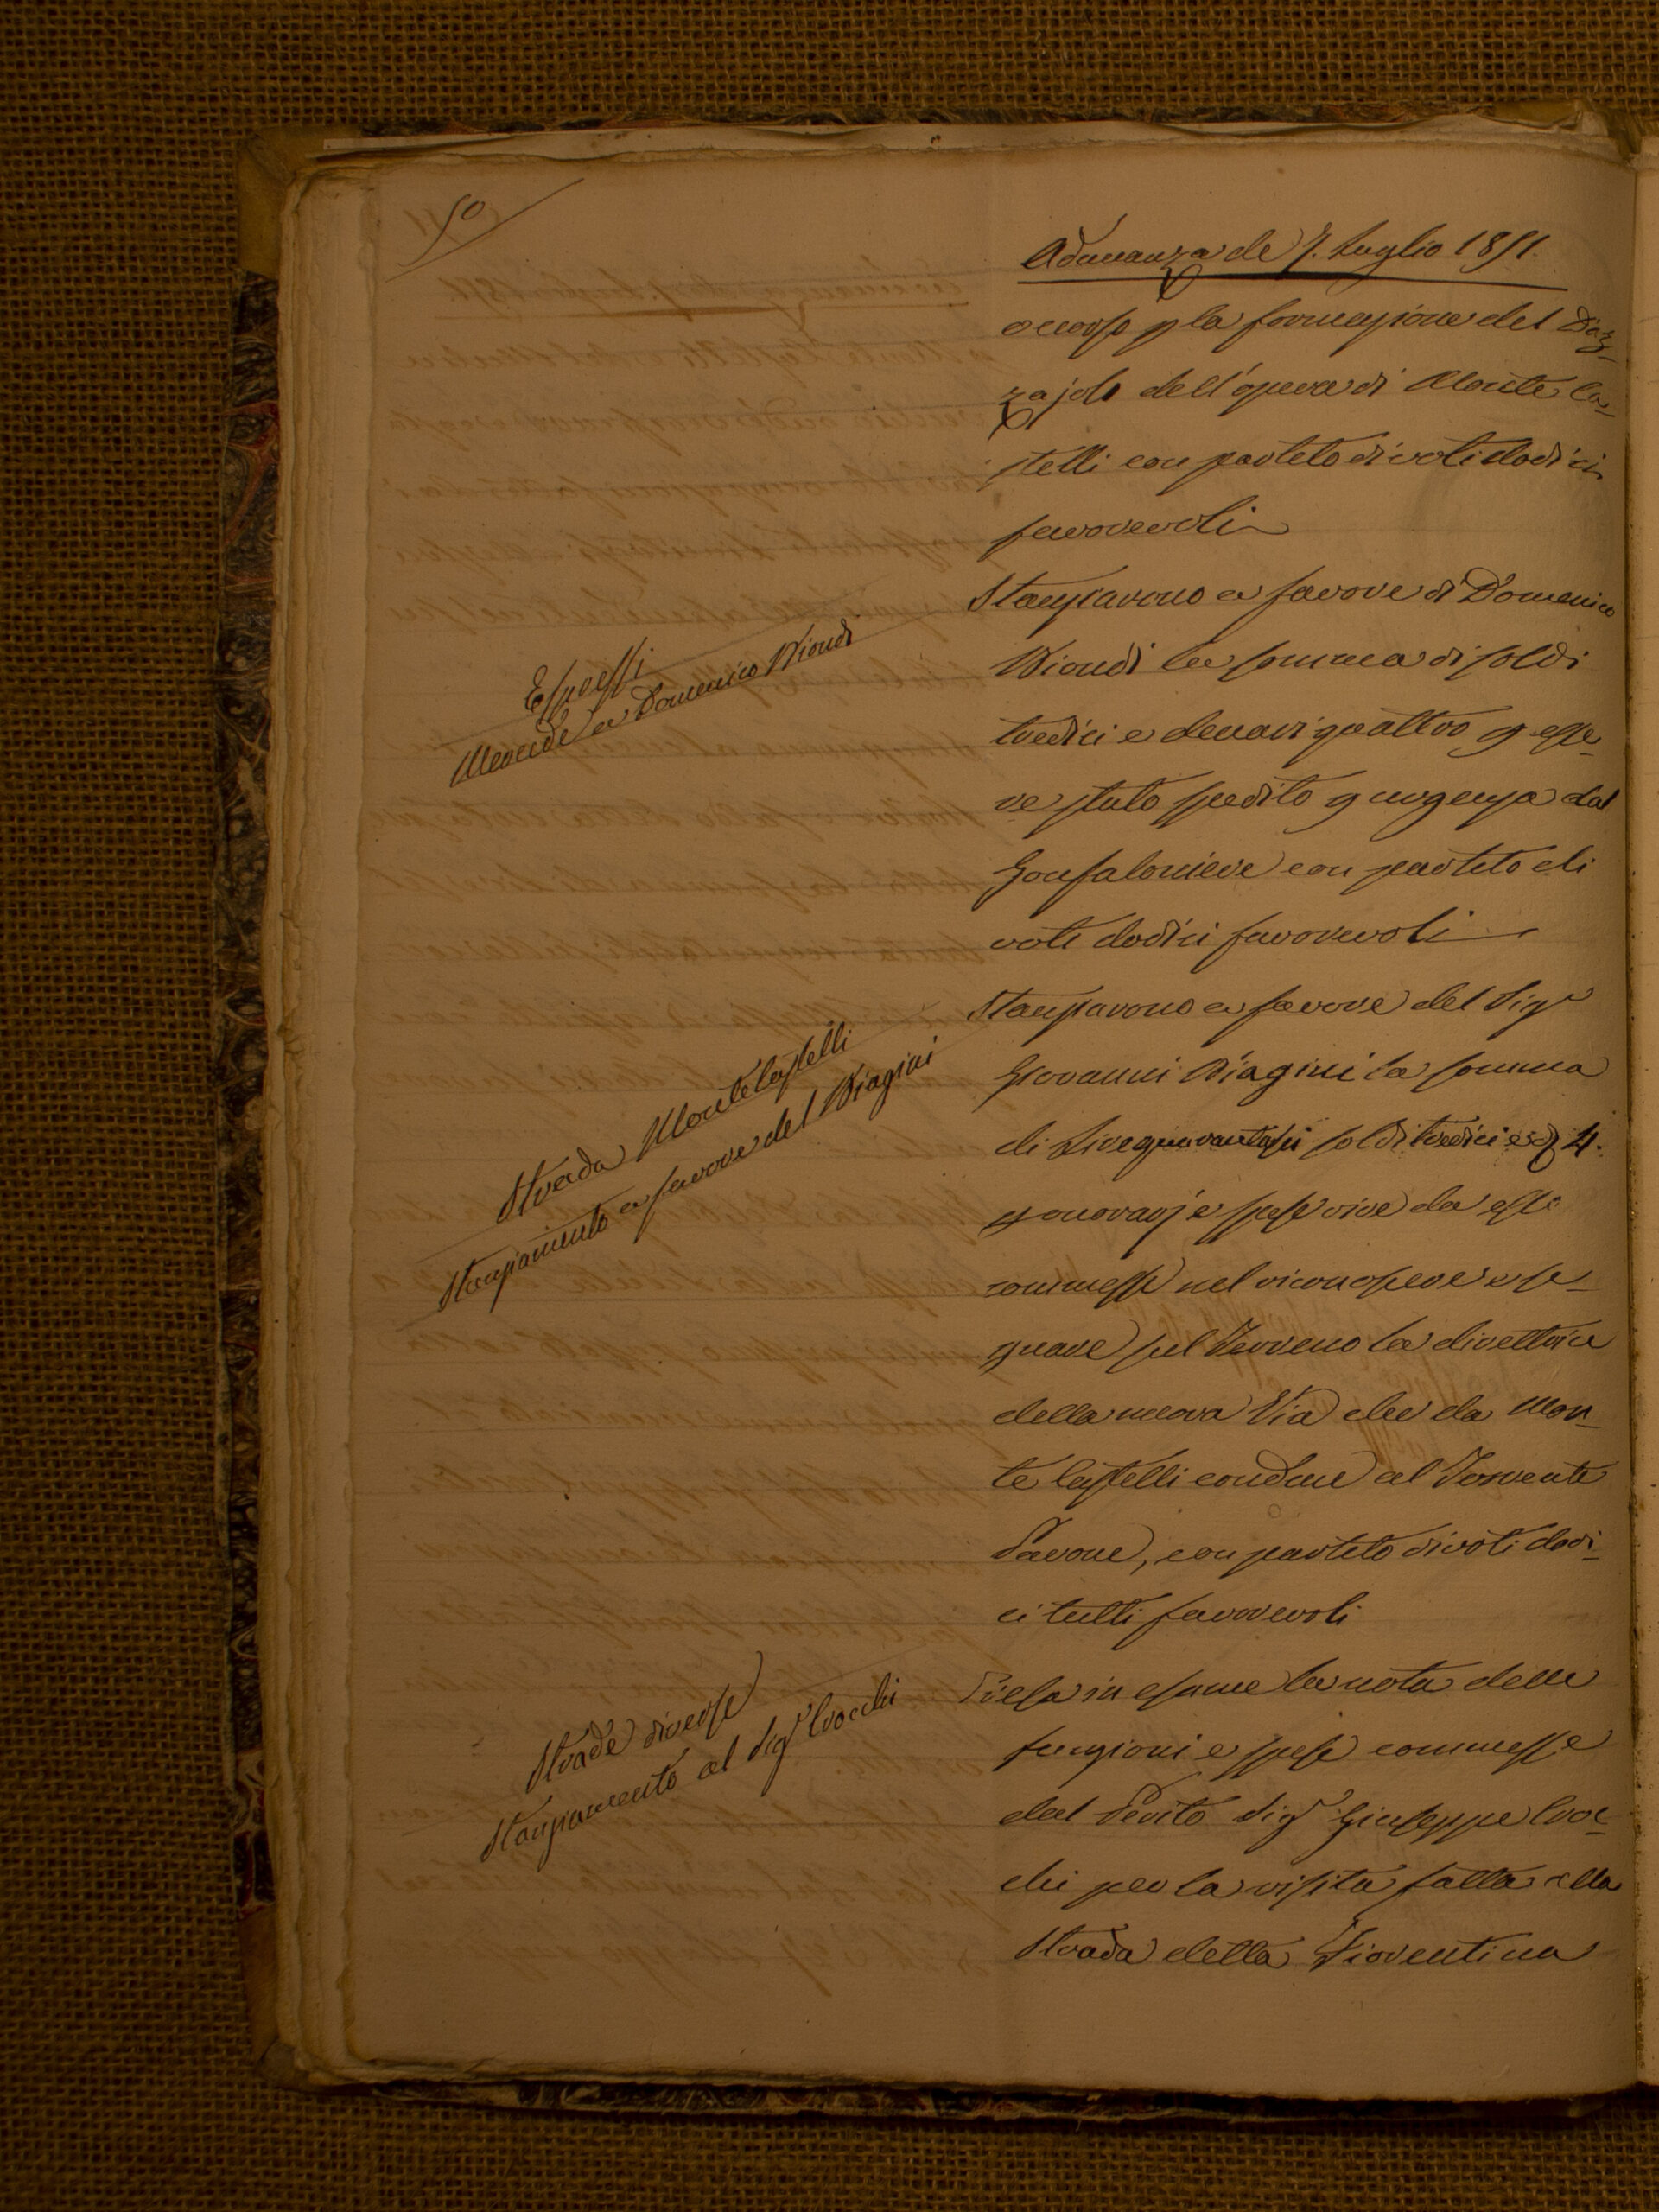 50
Adunanza de 7. Luglio 1851.
occorso p la formazione del Daz-
zajolo dell'opera di Monte Ca-
stelli con partito di voti dodici
favorevoli
Espressi
Mercede a Domenico Biondi
Stanziarono a favore di Domenico
Biondi la somma di soldi
tredici e denari quattro p esse-
re stato spedito p urgenza dal
Gonfaloniere con partito di
voti dodici favorevoli
Strada Monte Castelli
Stanziamento a favore del Biagini
Stanziarono a favore del Sigr
Giovanni Biagini la somma
di Lire quarantasei soldi tredici e d 4.
p onorarj e spese vive da esso
commesse nel riconoscere e se-
gnare sul Terreno la direttrice
della nuova Via che da Mon-
te Castelli conduce al Torrente
Pavone, con partito di voti dodi-
ci tutti favorevoli
Strade diverse
Stanziamento al Sigr Crocchi
Presa in esame la nota delle
funzioni e spese commesse
dal Perito Sigr Giuseppe Croc-
chi per la visita fatta alla
Strada detta Fiorentina